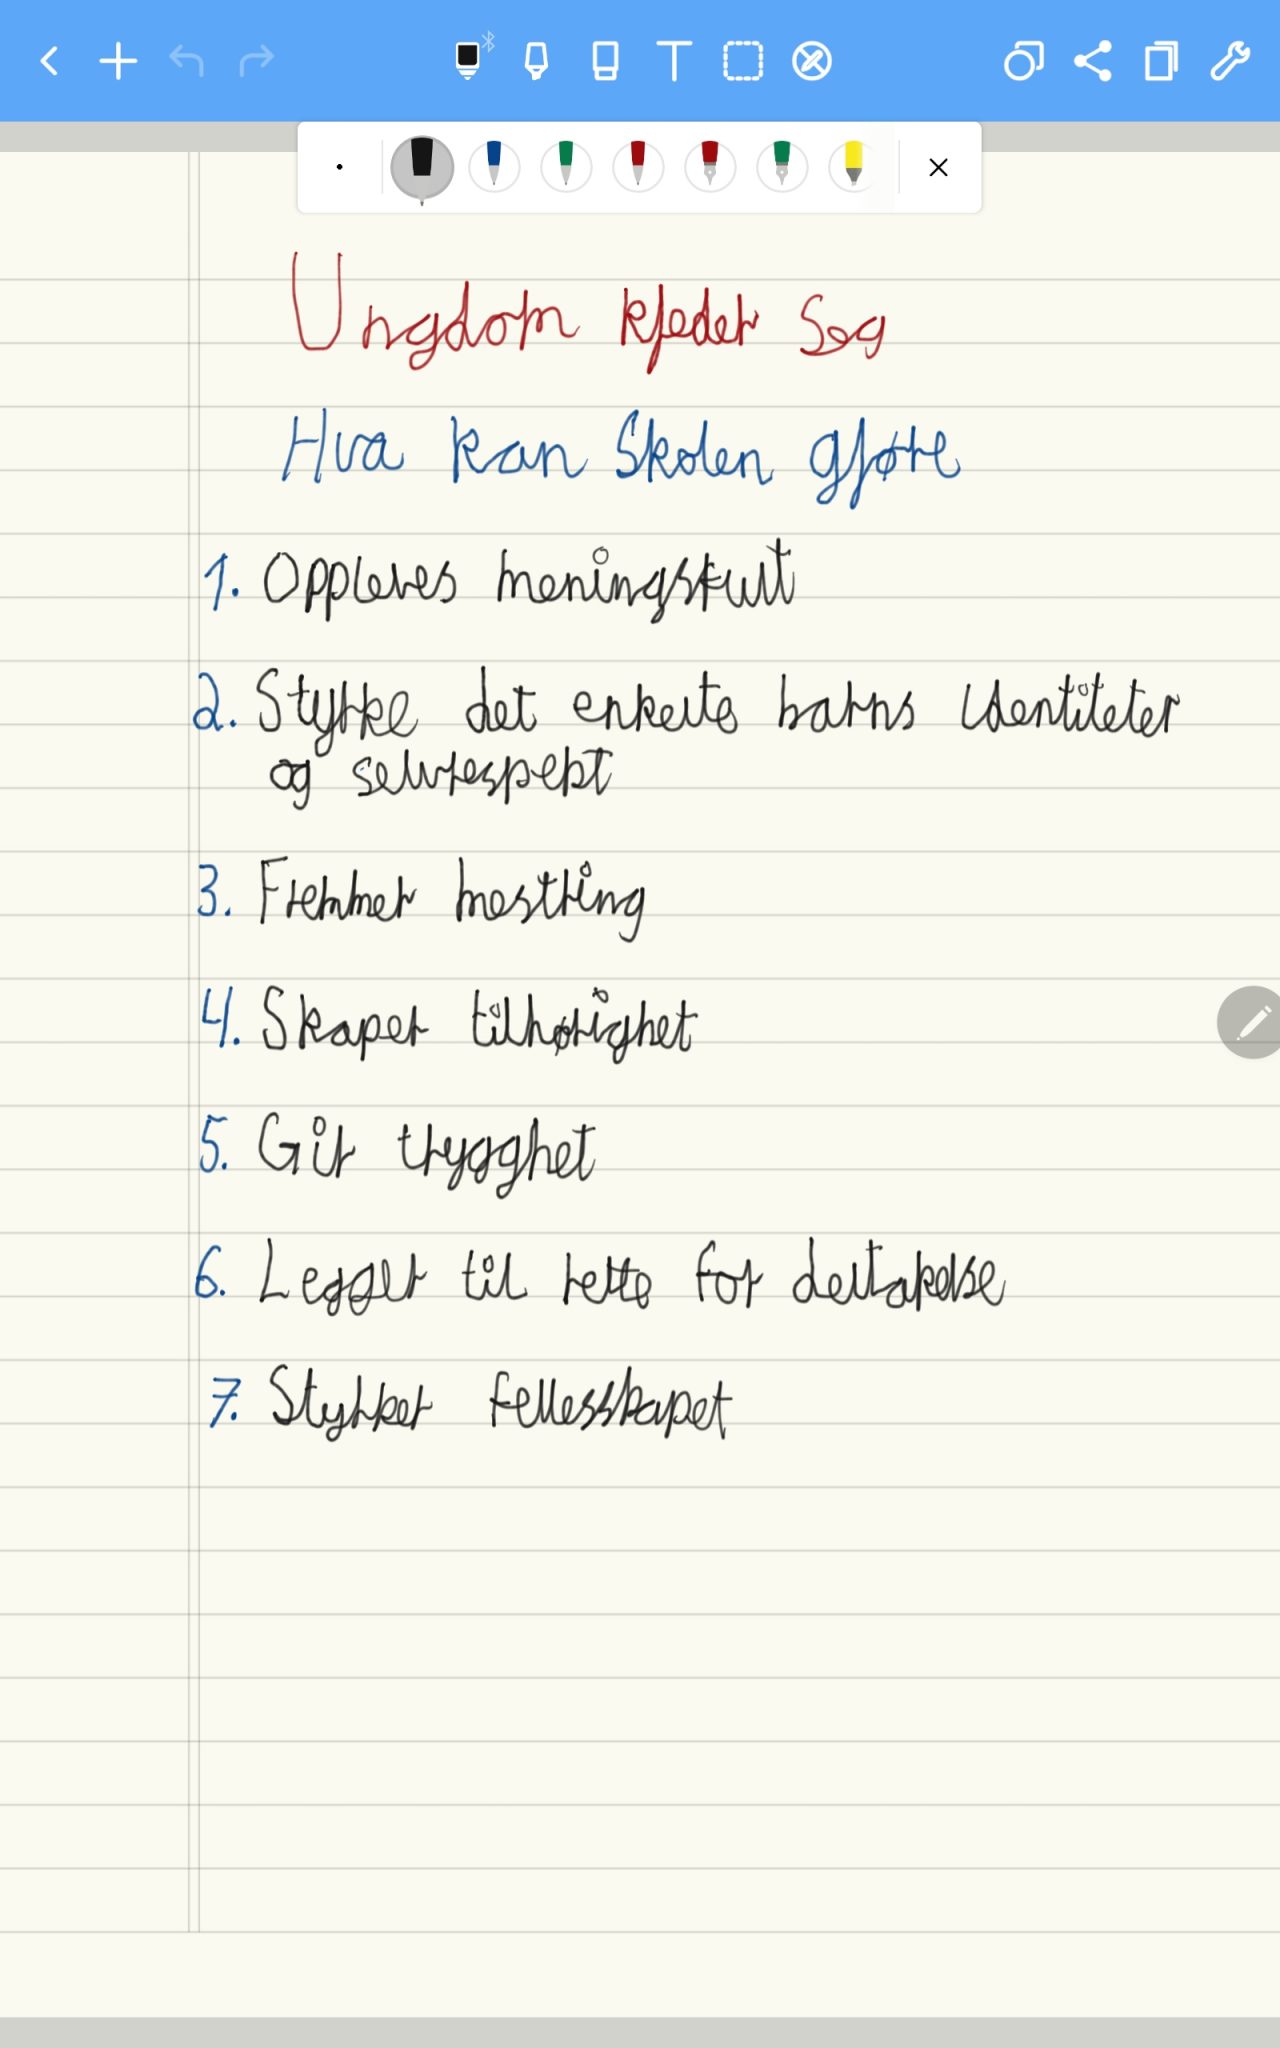 Ungdom kjeder seg
Hva kan Skolen gjøre
1. Oppleves meningsfullt
2. Styrke det enkelte barns identiteter
og selvrespekt
3. Fremmer mestring
4. Skaper tilhørighet
5. Gir trygghet
6. Legger til rette for deltakelse
7. Styrker fellesskapet